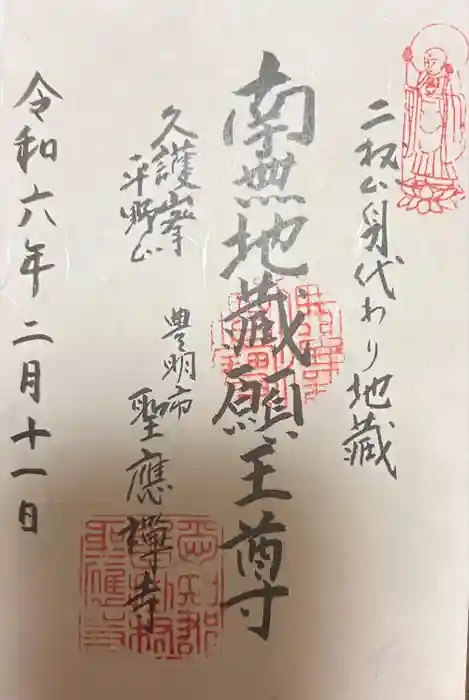 二村山身代わり地蔵
南無地蔵願王尊
久護峯
平野山
豊明市
聖應禪寺
令和六年二月十一日